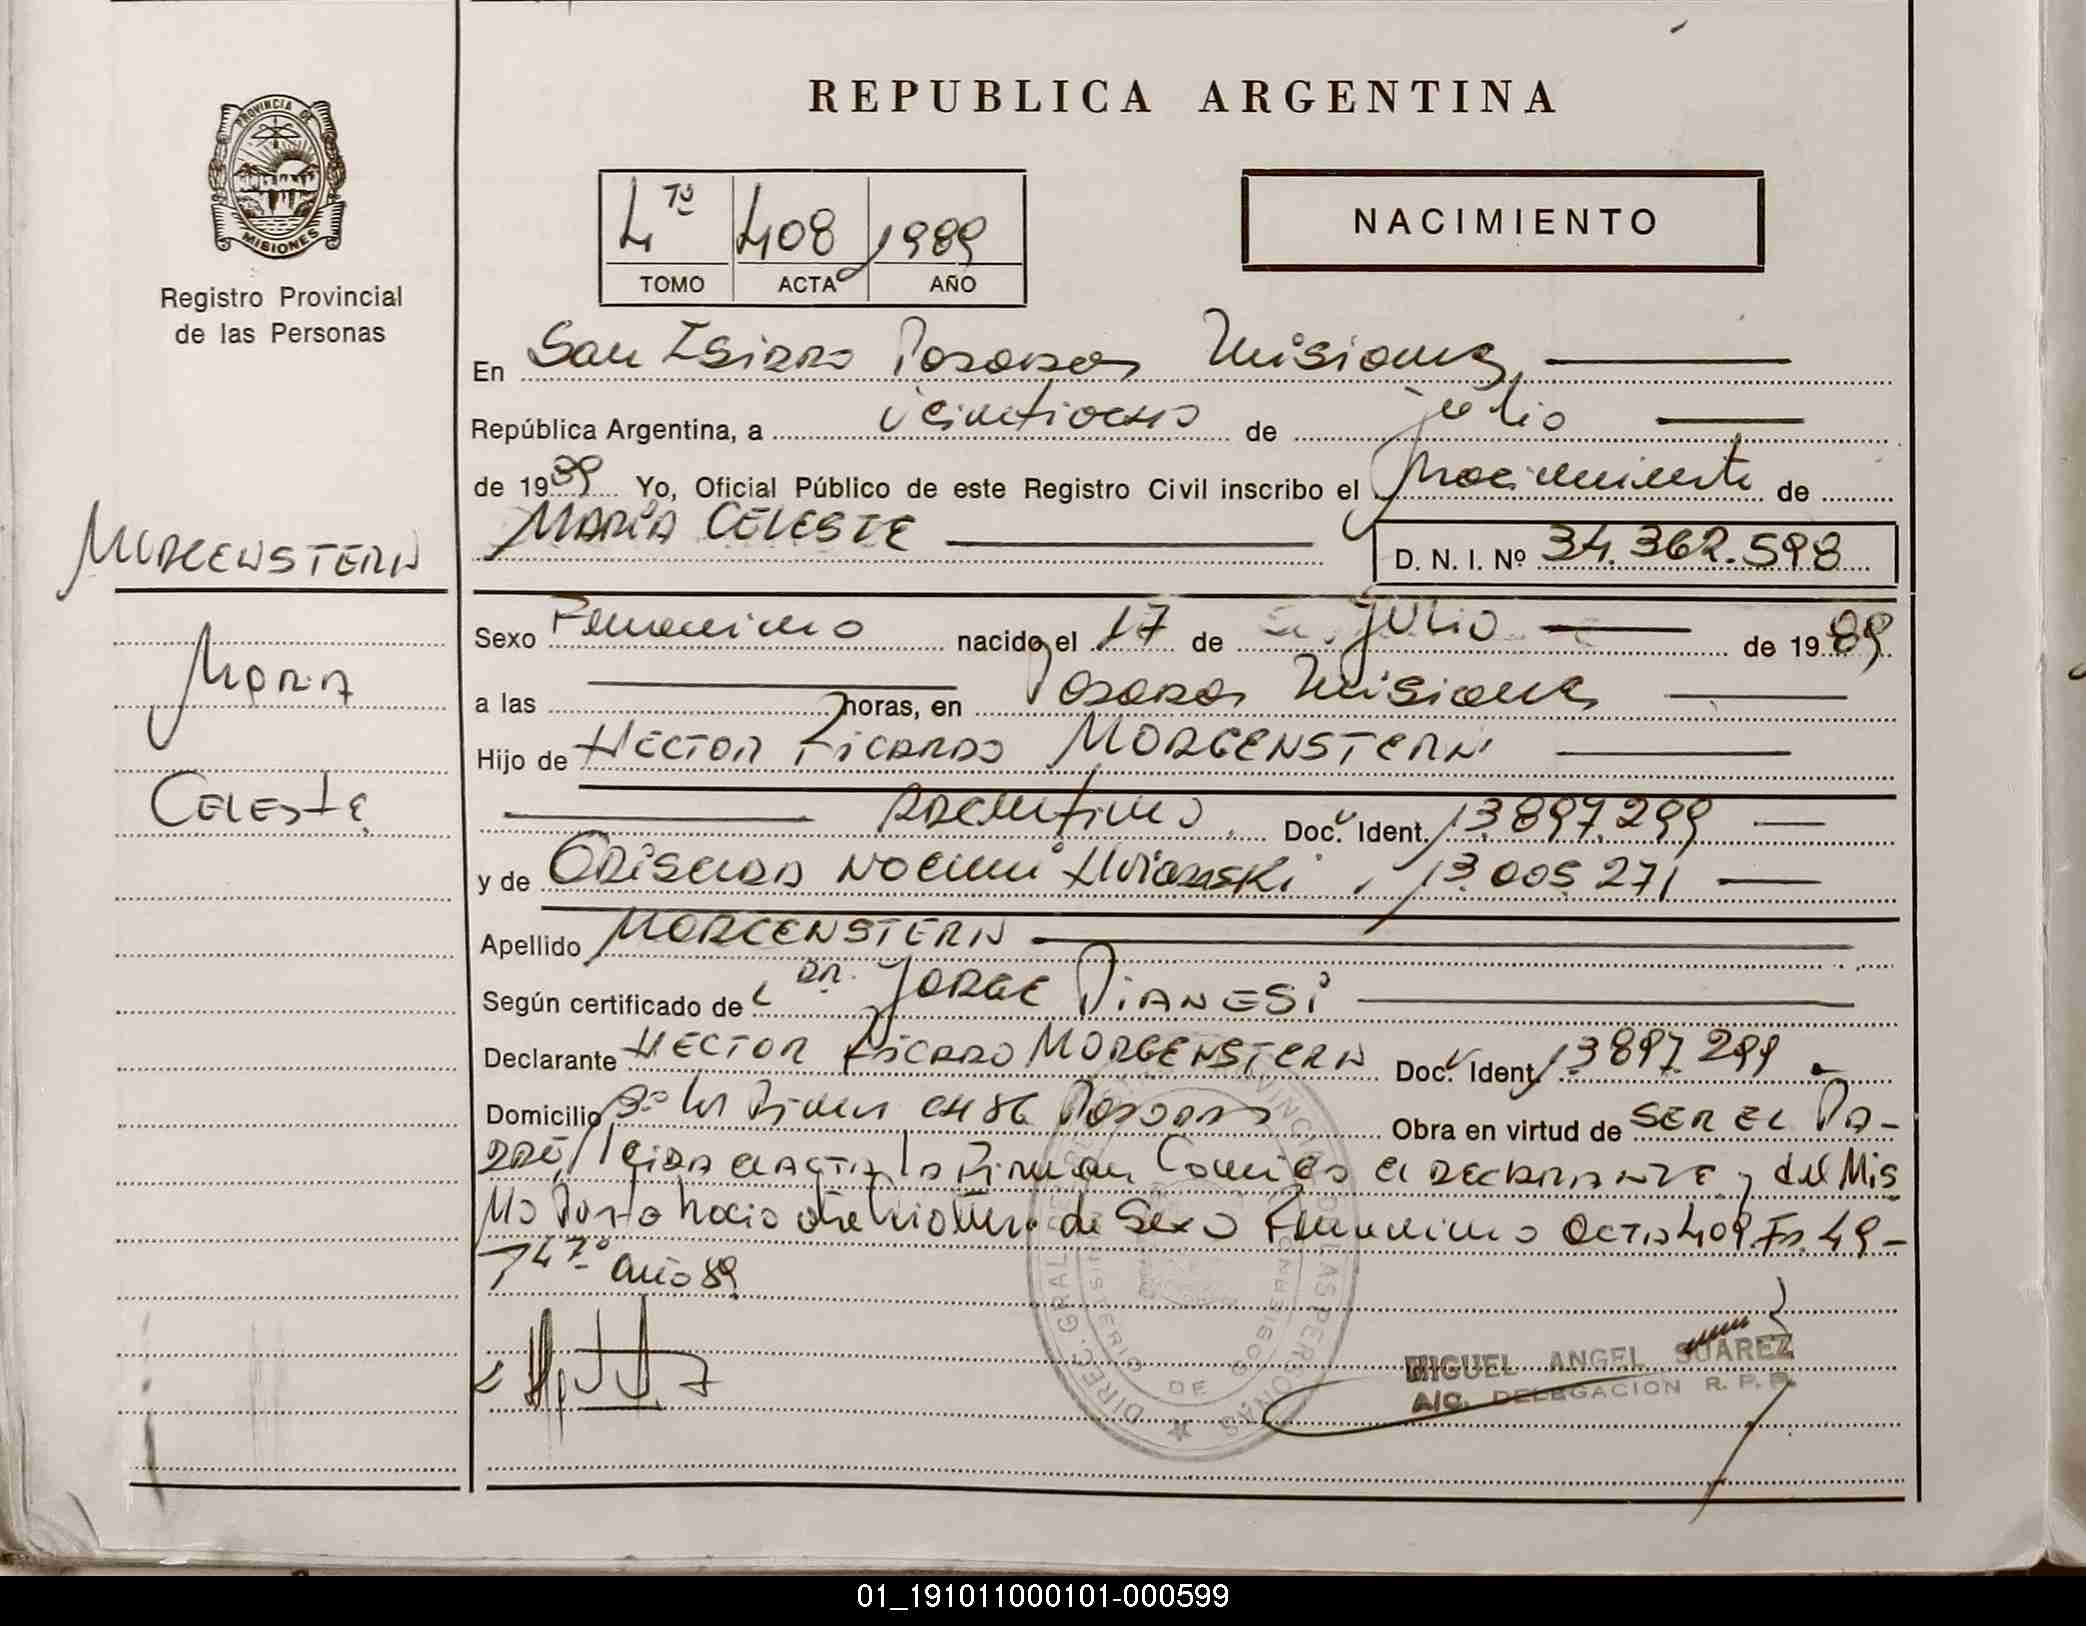 REPUBLICA ARGENTINA
PROVINCIA DE
MISIONES
Registro Provincial
de las Personas
4 TO 408 1989
TOMO ACTA AÑO
NACIMIENTO
En San Isidro Posadas Misiones
República Argentina, a veintiocho de julio
de 1989 Yo, Oficial Público de este Registro Civil inscribo el nacimiento de
MARIA CELESTE
D. N. I. Nº 34.362.598
MORGENSTERN
MARIA
CELESTE
Sexo Femenino nacido el 17 de JULIO de 1989
a las horas, en Posadas Misiones
Hijo de HECTOR RICARDO MORGENSTERN
ARGENTINO Doc. Ident. 13.897.299
y de GRISELDA NOEMI 13.005.271
Apellido MORGENSTERN
Según certificado de DR. JORGE DIANESI
Declarante HECTOR RICARDO MORGENSTERN Doc. Ident. 13897.299
Domicilio CH 86 Posadas Obra en virtud de SER EL PA-
DRE, leida el acta la Firman Conmigo el DECLARANTE y del Mis
Mo Parto Nacio otra de Sexo Femenino Acta 409. Fº. 49-
T 4º año 89
MIGUEL ANGEL SUAREZ
A/C. DELEGACION R. P. P.
01_191011000101-000599